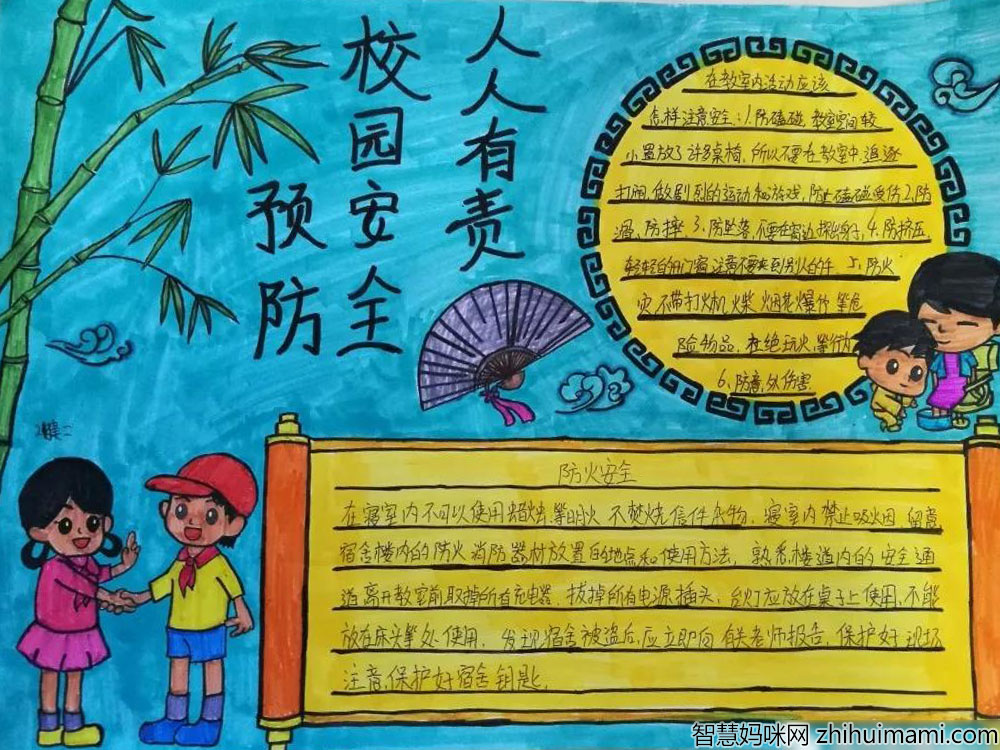 预防
校园安全
人人有责
在教室内活动应该
怎样注意安全:1.防磕碰,教室空间较
小置放了许多桌椅,所以不要在教室中追逐
打闹,做剧烈的运动和游戏,防止磕碰受伤2、防
滑、防摔 3、防坠落,不要在窗边探出身子,4、防挤压
轻轻的开门窗,注意不要夹到别人的手 5、防火
灾 不带打火机 火柴 烟花爆竹 等危
险物品,杜绝玩火等行为
6、防意外伤害
防火安全
在寝室内不可以使用蜡烛等明火 不焚烧信件杂物,寝室内禁止吸烟 留意
宿舍楼内的防火消防器材放置的地点和使用方法,熟悉楼道内的安全通
道离开教室前取掉所有充电器,拔掉所有电源插头,台灯应放在桌子上使用,不能
放在床头等处使用,发现宿舍被盗后,应立即向有关老师报告,保护好现场
注意,保护好宿舍钥匙,
智慧妈咪网 zhihuimami.com